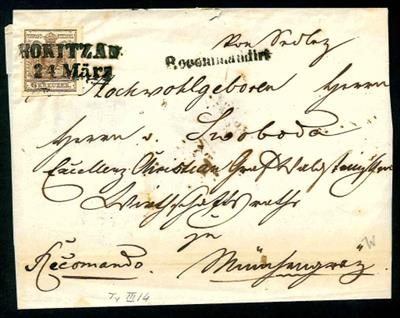 6 KREUZER
HORITZAU
24 März
Recommandirt
von Sedletz
Hochwohlgeboren Herrn
Herrn v. Swoboda
Excellenz Christian Graf Waldstein'schen
Wirthschaftsrath
zu
Recomando. Münchengrätz
Ty III/4